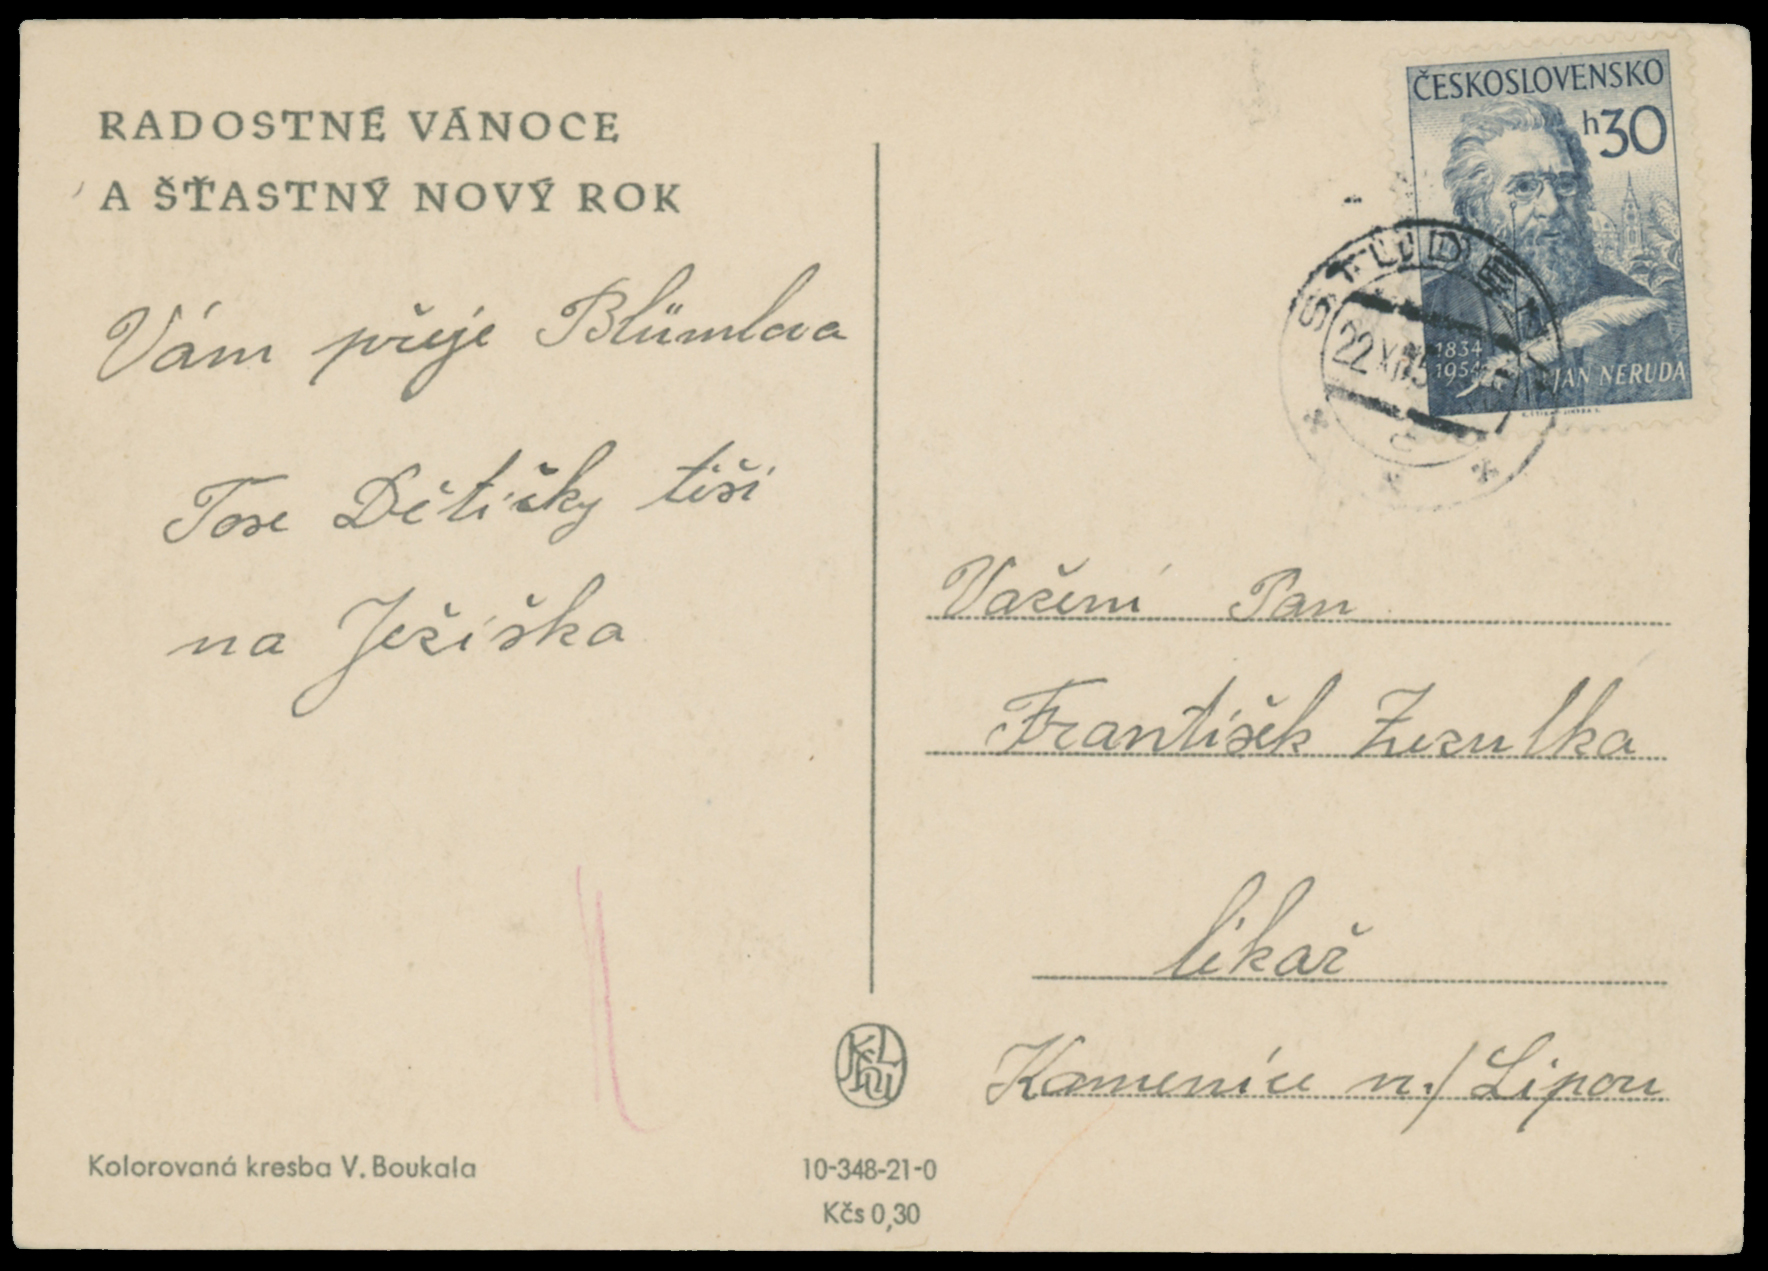 RADOSTNÉ VÁNOCE
A ŠŤASTNÝ NOVÝ ROK
Vám přeje Blümlova
Tose Dětičky těší
na Ježiška
ČESKOSLOVENSKO
h 30
1834
1954
JAN NERUDA
STUDEN
22 XII 5
Važení Pan
František Zezulka
lékař
Kamenice n./Lipou
Kolorovaná kresba V. Boukala
10-348-21-0
Kčs 0,30